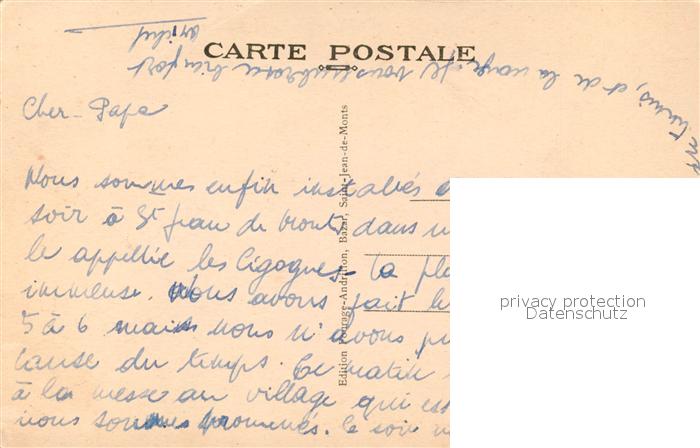 CARTE POSTALE
Cher Papa
Nous sommes enfin installés
soir à St Jean de Monts dans
le appellée les Cigognes. La
immense. Nous avons fait
5 à 6 mais nous n'avons pu
cause du temps. Ce matin
à la messe au village qui est
nous sommes promenés. Ce soir
tennis, et de la nage. Je vous embrasse bien fort
Edition Pourage-Andrillon, Bazar, Saint-Jean-de-Monts
privacy protection
Datenschutz